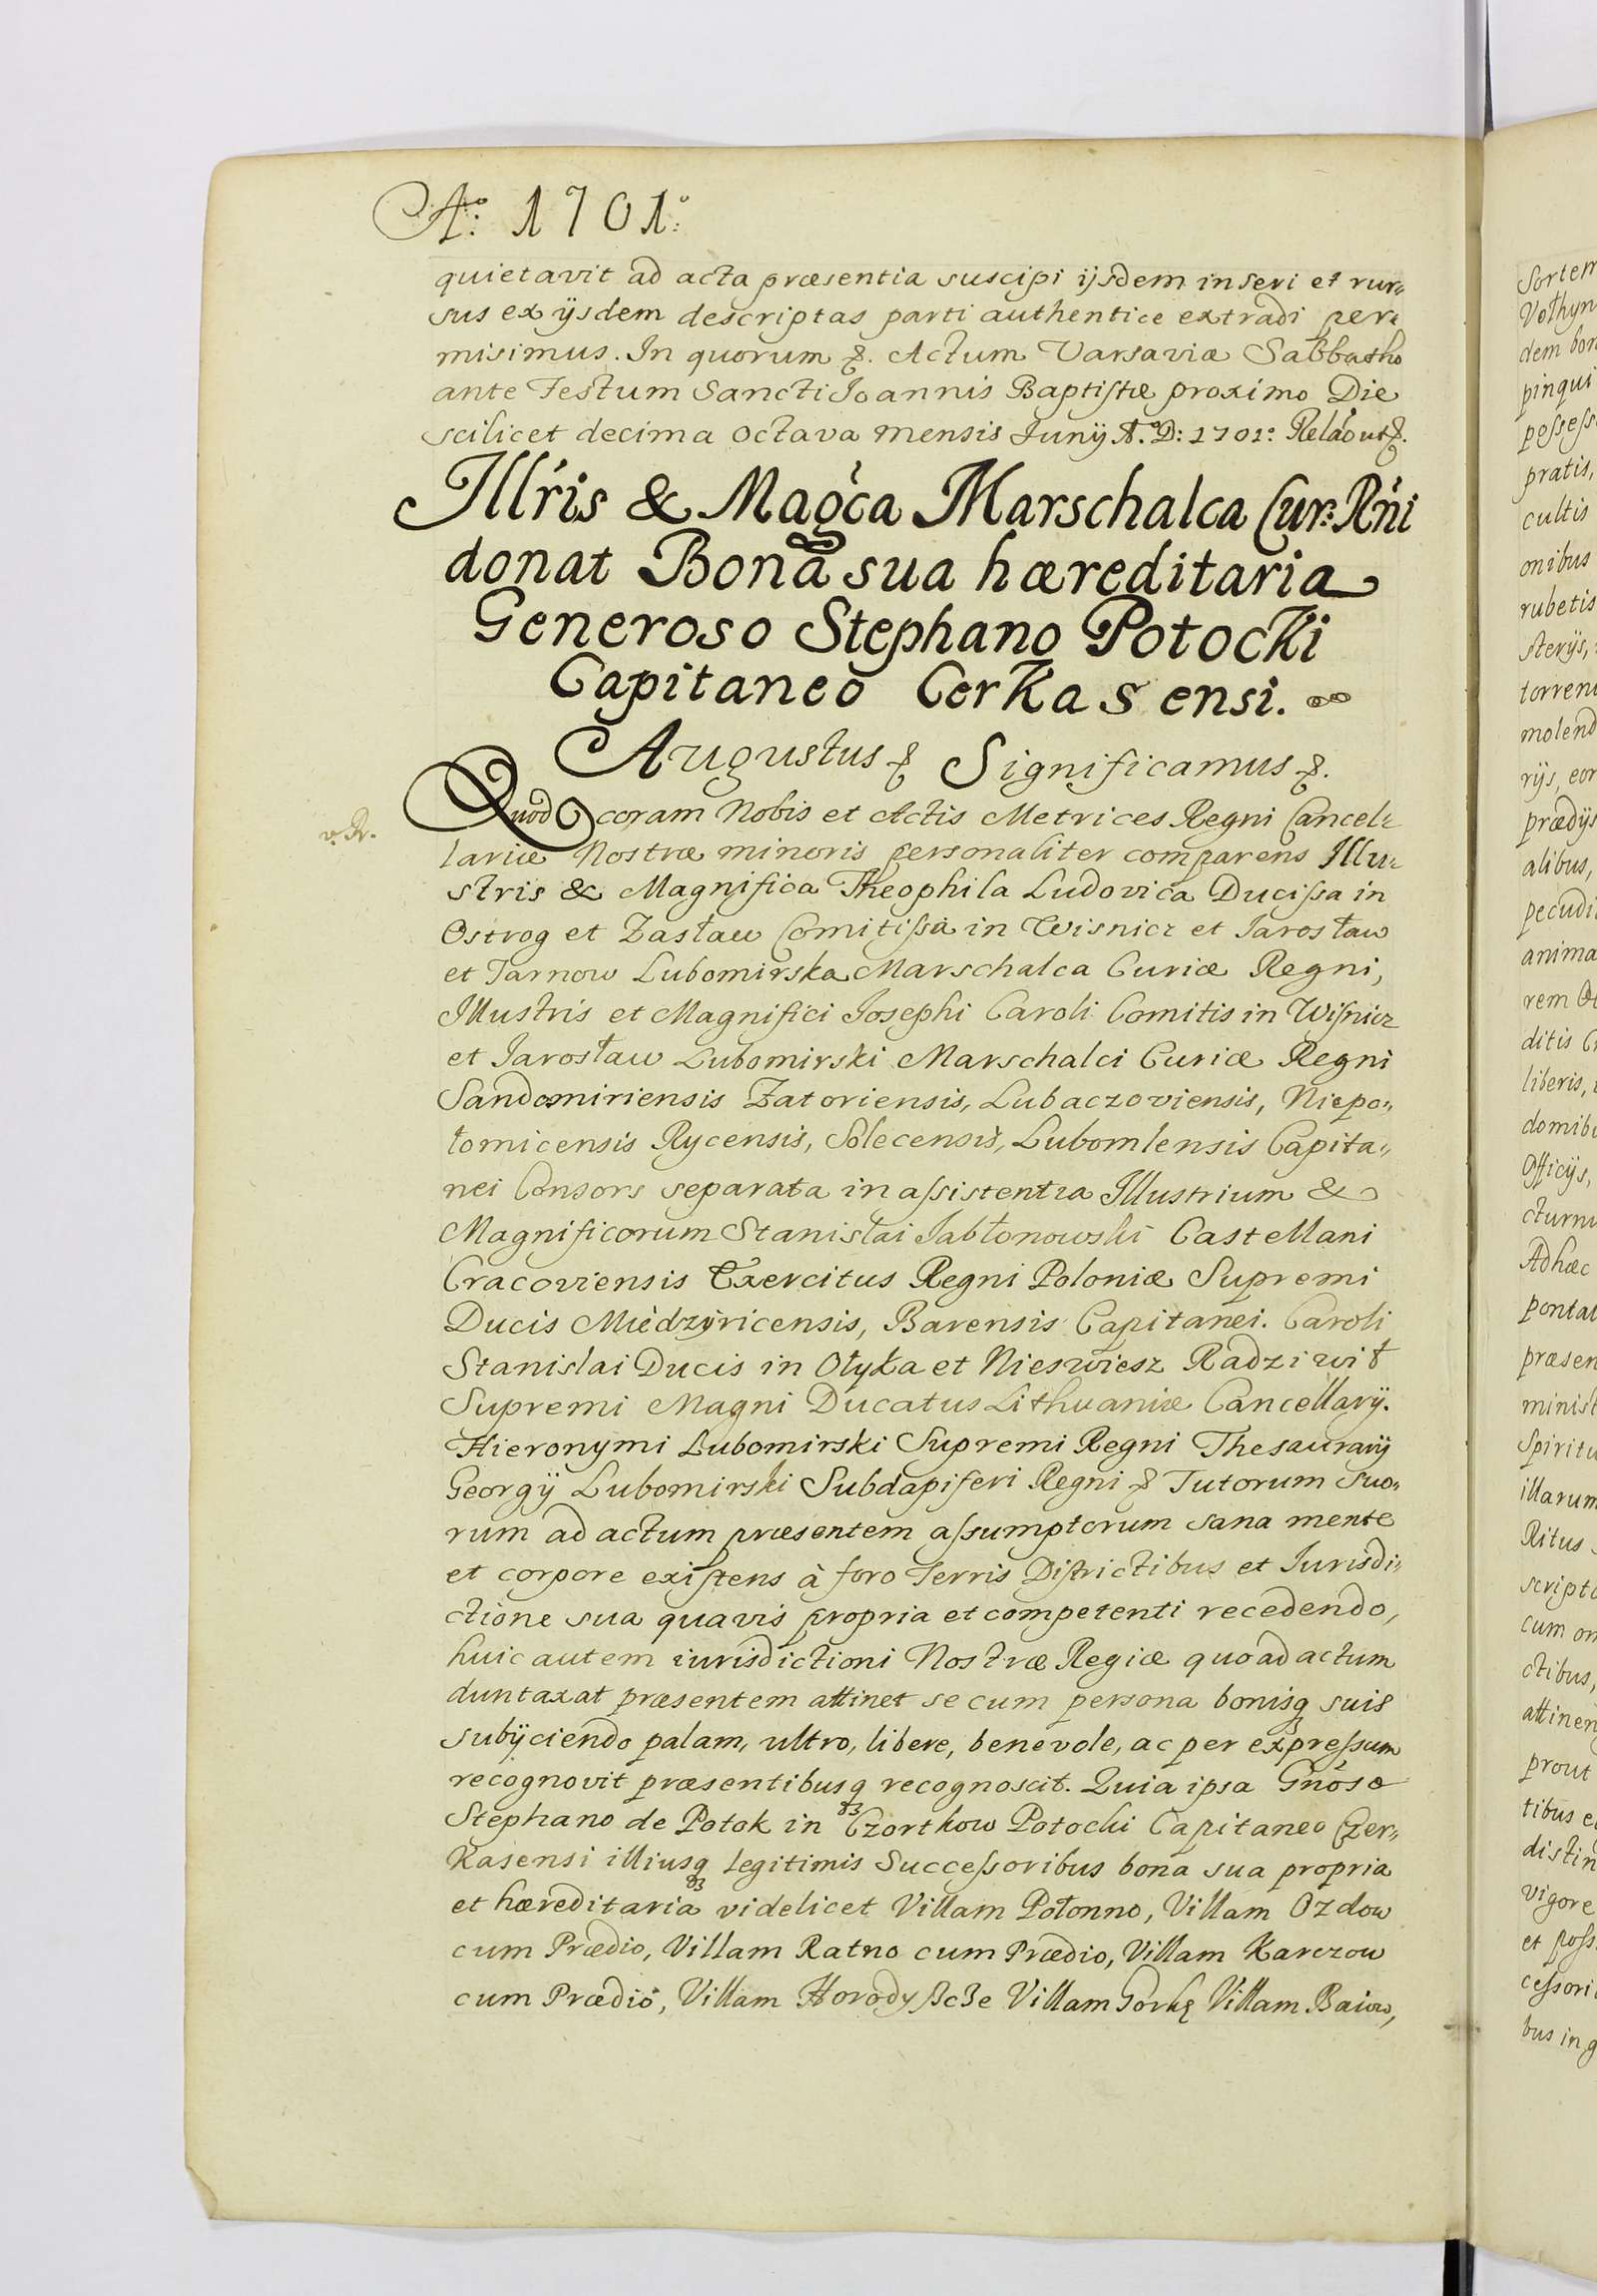 Aº: 1701º:
quietavit ad acta præsentia suscipi ijsdem inseri et rur=
sus ex ijsdem descriptas parti authentice extradi per=
misimus. In quorum &. Actum Varsaviæ Sabbatho
ante Festum Sancti Joannis Baptistæ proximo Die
scilicet decima octava mensis Junij Aº. D: 1701º: Relão ut &.
Illŕis & Mag̀ca Marschalca Cur: Rńi
donat Bona sua hæreditaria
Generoso Stephano Potocki
Capitaneo Cerkasensi.
Augustus & Significamus &.
v. R.
Quod coram Nobis et Actis Metrices Regni Cancel=
lariæ Nostræ minoris personaliter comparens Illu=
stris & Magnifica Theophila Ludovica Ducissa in
Ostrog et Zasław Comitissa in Wisnicz et Jarosław
et Tarnow Lubomirska Marschalca Curiæ Regni,
Illustris et Magnifici Josephi Caroli Comitis in Wisnicz
et Jarosław Lubomirski Marschalci Curiæ Regni
Sandomiriensis Zatoriensis, Lubaczoviensis, Niepo=
łomicensis Rycensis, Solecensis, Lubomlensis Capita=
nei Consors separata in assistentia Illustrium &
Magnificorum Stanisłai Jabłonowski Castellani
Cracoviensis Exercitus Regni Poloniæ Supremi
Ducis Miedzyricensis, Barensis Capitanei. Caroli
Stanislai Ducis in Ołyka et Nieswiesz Radziwił
Supremi Magni Ducatus Lithuaniæ Cancellarij.
Hieronymi Lubomirski Supremi Regni Thesaurarij
Georgij Lubomirski Subdapiferi Regni & Tutorum suo=
rum ad actum præsentem assumptorum sana mente
et corpore existens à foro Terris Districtibus et Jurisdi=
ctione sua quavis propria et competenti recedendo,
huic autem iurisdictioni Nostræ Regiæ quoad actum
duntaxat præsentem attinet se cum persona bonisq suis
subijciendo palam, ultro, libere, benevole, ac per expressum
recognovit præsentibusq recognoscit. Quia ipsa Gñoso
Stephano de Potok in Czortkow Potocki Capitaneo Czer=
kasensi illiusq legitimis Successoribus bona sua propria
et hæreditaria videlicet Villam Połonno, Villam Ozdow
cum Prædio, Villam Ratno cum Prædio, Villam Karczow
cum Prædio, Villam Horodyszcze Villam Gorkę Villam Baiow,
Sortem
Vołhyn
dem bon
pinqui
possess
pratis,
cultis
onibus
rubetis
sterijs,
torren
molend
rijs, eor
prædijs
alibus,
pecudi
anima
rem
ditis
liberis,
domib
Officijs,
cturnu
Adhæc
pontal
præsen
minist
Spiritu
illarum
Ritus
scripto
cum om
ctibus,
attinen
prout
tibus e
distin
vigore
et poss
cessori
bus in g